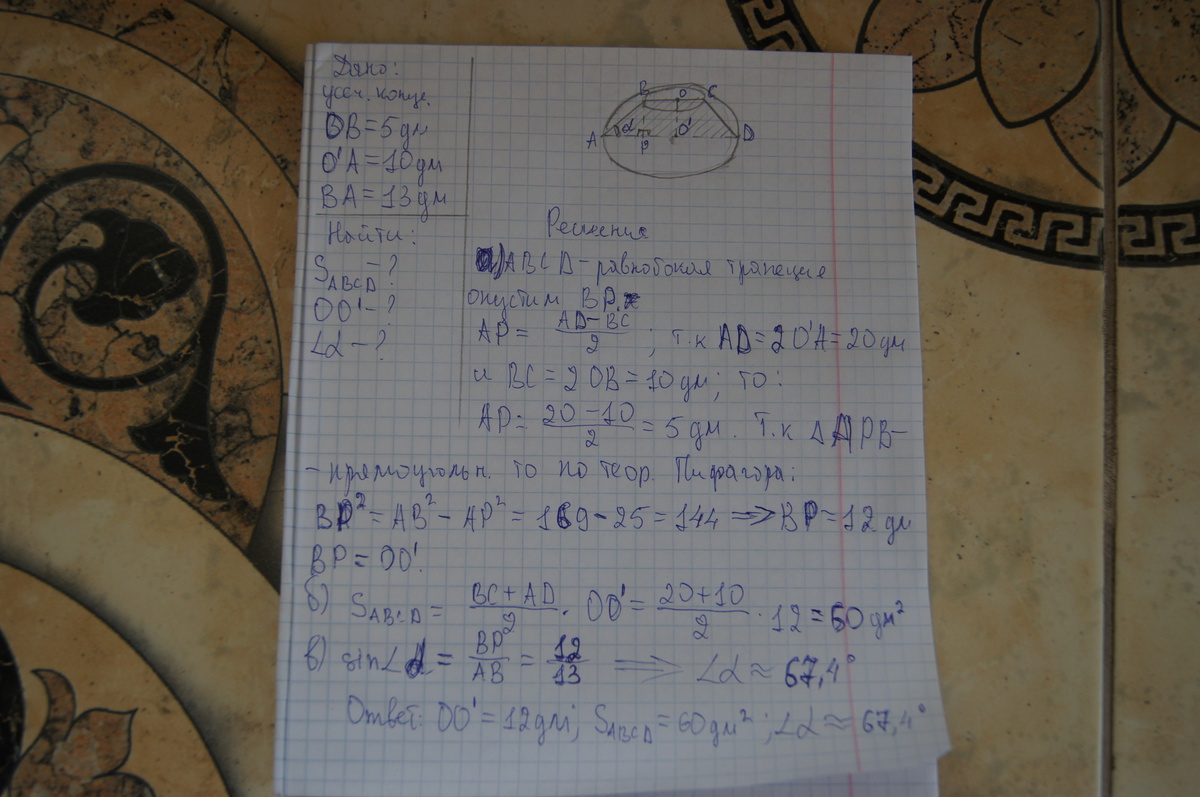 Дано:
усеч. конус.
OB = 5 дм
O'A = 10 дм
BA = 13 дм
Найти:
S_ABCD - ?
OO' - ?
∠α - ?
B O C
A α P O' D
Решение
а) ABCD - равнобокая трапеция
опустим BP.
AP = (AD - BC)/2 ; т.к AD = 2O'A = 20 дм
и BC = 2OB = 10 дм; то:
AP = (20 - 10)/2 = 5 дм. Т.к △APB -
- прямоугольн. то по теор. Пифагора:
BP² = AB² - AP² = 169 - 25 = 144 ⇒ BP = 12 дм
BP = OO'.
б) S_ABCD = (BC + AD)/2 · OO' = (20 + 10)/2 · 12 = 60 дм²
в) sin∠α = BP/AB = 12/13 ⇒ ∠α ≈ 67,4°
Ответ: OO' = 12 дм; S_ABCD = 60 дм²; ∠α ≈ 67,4°